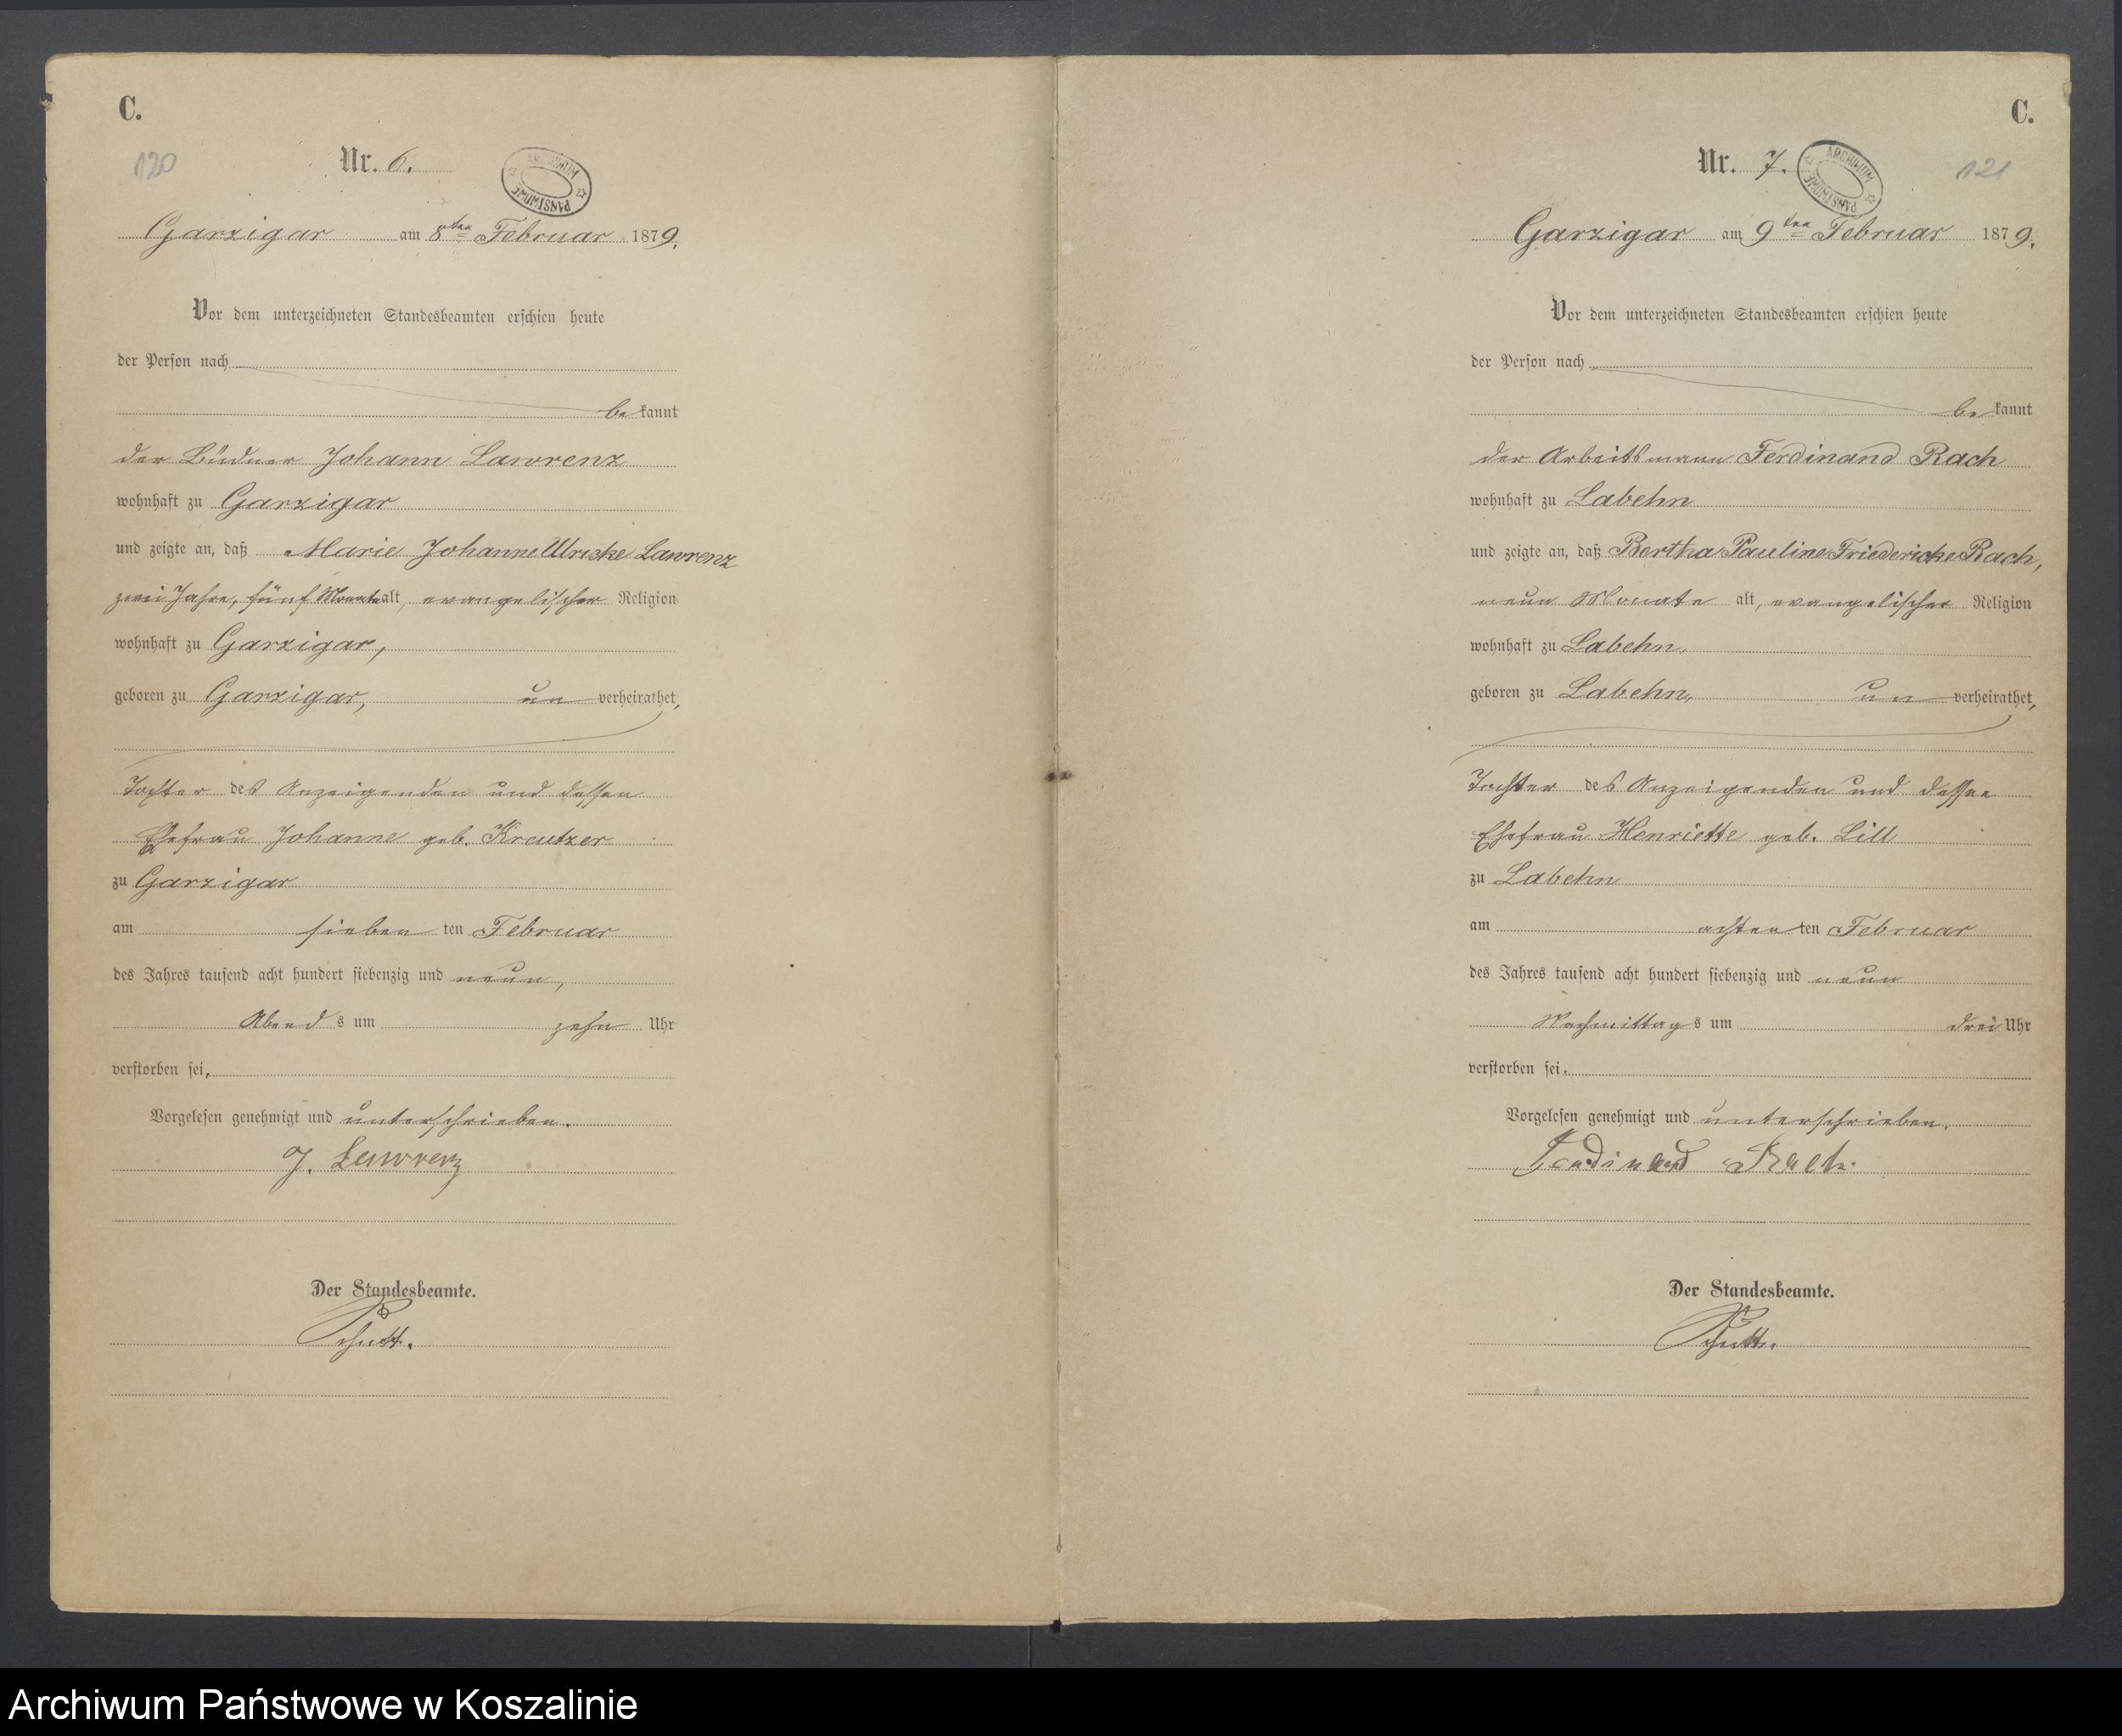 C.
120
Nr. 6.
ARCHIWUM PAŃSTWOWE
Garzigar am 8ten Februar 1879.
Vor dem unterzeichneten Standesbeamten erschien heute
der Person nach
be kannt
der Büdner Johann Lawrenz
wohnhaft zu Garzigar
und zeigte an, daß Marie Johanne Ulricke Lawrenz
zwei Jahre, fünf Monate alt, evangelischer Religion
wohnhaft zu Garzigar,
geboren zu Garzigar, un verheirathet,
Tochter des Anzeigenden und dessen
Ehefrau Johanne geb. Kreutzer
zu Garzigar
am sieben ten Februar
des Jahres tausend acht hundert siebenzig und neun,
Abend s um zehn Uhr
verstorben sei,
Vorgelesen genehmigt und unterschrieben.
J. Lawrenz
Der Standesbeamte.
C.
Nr. 7.
ARCHIWUM PAŃSTWOWE
121
Garzigar am 9ten Februar 1879.
Vor dem unterzeichneten Standesbeamten erschien heute
der Person nach
be kannt
der Arbeitsmann Ferdinand Rach
wohnhaft zu Labehn
und zeigte an, daß Bertha Pauline Friedericke Rach,
neun Monate alt, evangelischer Religion
wohnhaft zu Labehn,
geboren zu Labehn, un verheirathet,
Tochter des Anzeigenden und dessen
Ehefrau Henriette geb. Lill
zu Labehn
am achten ten Februar
des Jahres tausend acht hundert siebenzig und neun
Nachmittag s um drei Uhr
verstorben sei.
Vorgelesen genehmigt und unterschrieben.
Ferdinand Rach.
Der Standesbeamte.
Archiwum Państwowe w Koszalinie